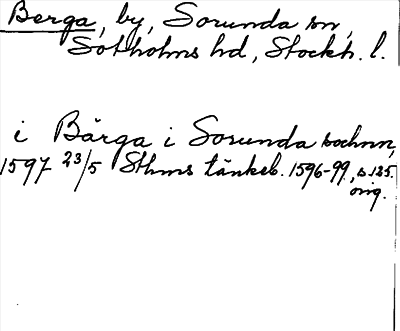 Berga, by, Sorunda sn,
Sotholms hd, Stockh. l.
i Bärga i Sorunda sochnn,
1597 23/5 Sthms tänkeb. 1596-99, s. 125.
orig.